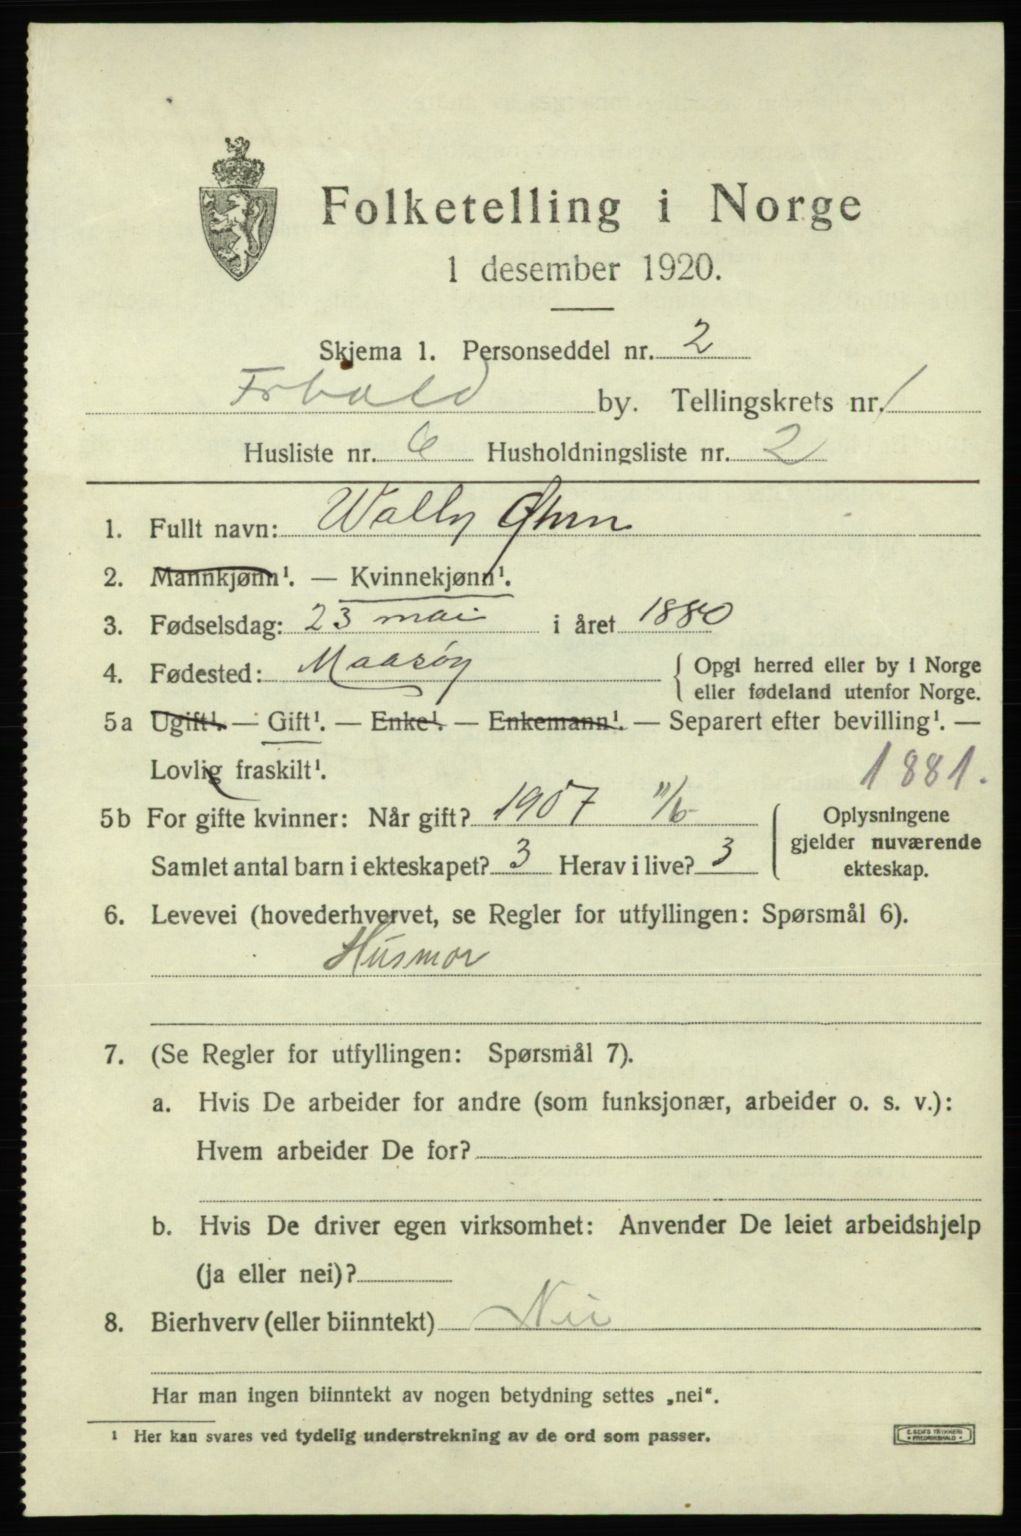 Folketelling i Norge
1 desember 1920.
Skjema 1. Personseddel nr. 2
Frhald by. Tellingskrets nr. 1
Husliste nr. 6 Husholdningsliste nr. 2
1. Fullt navn: Wally
2. Mannkjønn¹. — Kvinnekjønn¹.
3. Fødselsdag: 23 mai i året 1880
4. Fødested: Maasøy { Opgi herred eller by i Norge
eller fødeland utenfor Norge.
5a Ugift¹. — Gift¹. — Enke¹. — Enkemann¹. — Separert efter bevilling¹. —
Lovlig fraskilt¹. 1881.
5b For gifte kvinner: Når gift? 1907 11/6 { Oplysningene
gjelder nuværende
Samlet antal barn i ekteskapet? 3 Herav i live? 3 ekteskap.
6. Levevei (hovederhvervet, se Regler for utfyllingen: Spørsmål 6).
Husmor
7. (Se Regler for utfyllingen: Spørsmål 7).
a. Hvis De arbeider for andre (som funksjonær, arbeider o. s. v.):
Hvem arbeider De for?
b. Hvis De driver egen virksomhet: Anvender De leiet arbeidshjelp
(ja eller nei)?
8. Bierhverv (eller biinntekt) Nei
Har man ingen biinntekt av nogen betydning settes „nei“.
¹ Her kan svares ved tydelig understrekning av de ord som passer.
E. SEMS TRYKKERI
FREDRIKSHALD